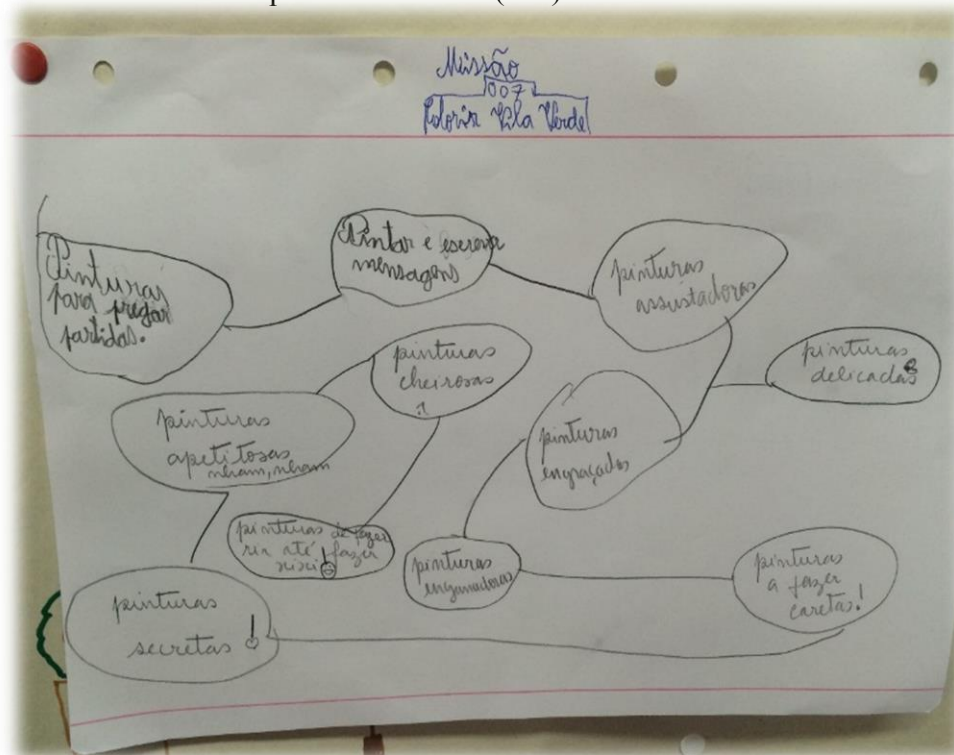 Missão
007
Colorir Vila Verde
Pinturas
para pregar
partidas.
Pintar e escrever
mensagens
pinturas
assustadoras
pinturas
cheirosas
pinturas
delicadas
pinturas
apetitosas
nham, nham
pinturas
engraçadas
pinturas de fazer
rir até fazer
xixi!
pinturas
enganadoras
pinturas
a fazer
caretas!
pinturas
secretas !